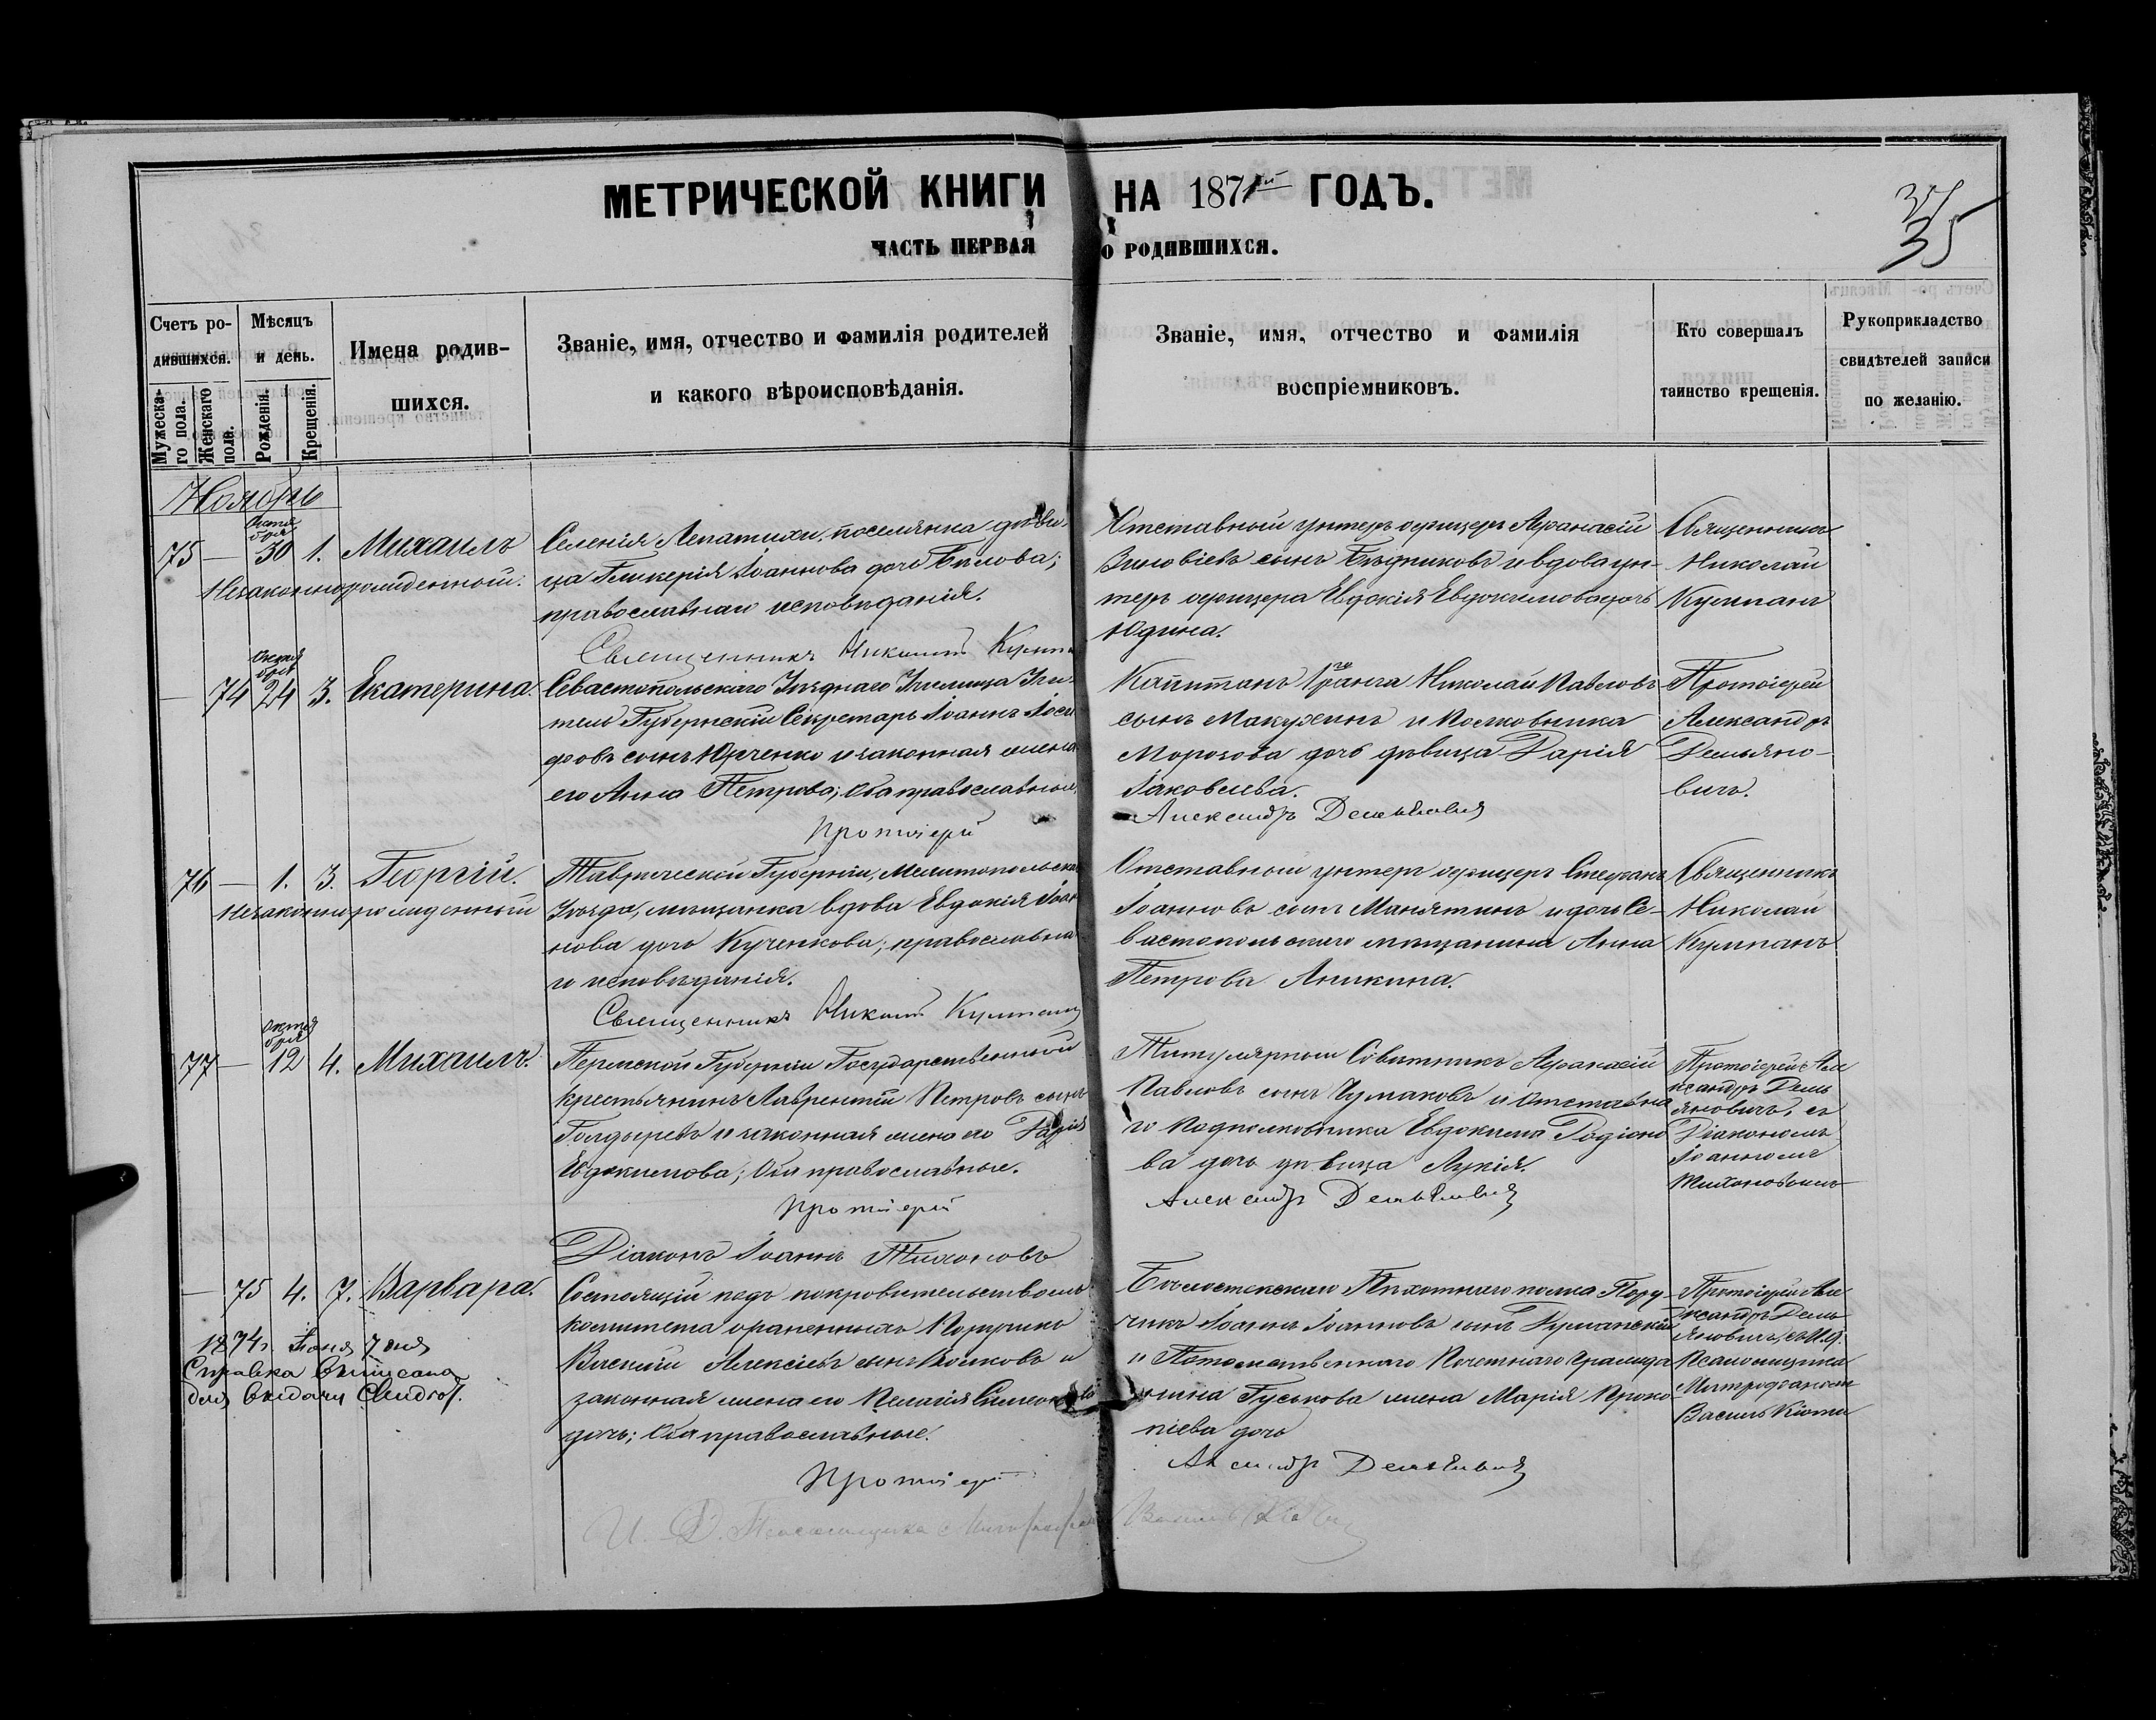 МЕТРИЧЕСКОЙ КНИГИ НА 1871й ГОДЪ.
ЧАСТЬ ПЕРВАЯ О РОДИВШИХСЯ.
35
Счетъ ро-
дившихся.
Мужеска-
го пола.
Женскаго
пола.
Мѣсяцъ
и день.
Рожденія.
Крещенія.
Имена родив-
шихся.
Званіе, имя, отчество и фамилія родителей
и какого вѣроисповѣданія.
Званіе, имя, отчество и фамилія
воспріемниковъ.
Кто совершалъ
таинство крещенія.
Рукоприкладство
свидѣтелей записи
по желанію.
Ноябрь
75 — Октя
бря
30 1. Михаилъ
Незаконнорожденный.
Селенія Лепатихи, поселянка дѣви-
ца Гликерія Іоаннова дочь Бѣлова;
православнаго исповѣданія.
Священникъ Николай
Отставный унтеръ офицеръ Аѳанасій
Зиновіевъ сынъ Бѣдниковъ и вдова ун-
теръ офицера Евдокія Евдокимова дочь
Юдина.
Священникъ
Николай
Кулпанъ
— 74 Октя
бря
24 3. Екатерина
Севастопольскаго Уѣзднаго Училища Учи-
тель Губернскій Секретарь Іоаннъ
фовъ сынъ Юрченко и законная жена
его Анна Петрова; оба православные,
Протоіерей
Капитанъ 1го ранга Николай Павловъ
сынъ Макухинъ и Полковника
Морозова дочь дѣвица Дарія
Іаковлева.
Александръ Демьяновичъ
Протоіерей
Александръ
Демьяно-
вичъ.
76 — 1. 3. Георгій.
Незаконнорожденный
Таврической Губерніи, Мелитопольска
Уѣзда, мѣщанка вдова Евдокія Іоан
нова дочь Кученкова; православна
го исповѣданія.
Священникъ Николай
Отставной унтеръ офицеръ Стефанъ
Іоанновъ сынъ Манятинъ и дочь Се-
вастопольскаго мѣщанина Анна
Петрова Аникина.
Священникъ
Николай
Кулпанъ
77 — Октя
бря
12 4. Михаилъ.
Пермской Губерніи Государственной
крестьянинъ Лаврентій Петровъ сынъ
Голдыревъ и законная жена его Дарія
Евдокимова; Оба православные.
Протоіерей
Титулярный Совѣтникъ Аѳанасій
Павловъ сынъ Чумаковъ и отставна
го Подполковника Евдокима Родіоно
ва дочь дѣвица Лукія.
Александръ Демьяновичъ
Протоіерей Але
ксандръ Демь
яновичъ, съ
Діакономъ
Іоанномъ
Тихоновымъ
Діаконъ Іоаннъ Тихоновъ
— 75 4. 7. Варвара.
1874г. Іюня 7 дня
Справка выписана
для выдачи Свидѣт.
Состоящій подъ покровительствомъ
комитета о раненныхъ Поручикъ
Василій Алексіевъ сынъ Волковъ и
законная жена его Пелагія Симеонова
дочь; Оба православные.
Протоіерей
Бѣлостокскаго Пѣхотнаго полка Пору-
чикъ Іоаннъ Іоанновъ сынъ
и Потомственнаго Почетнаго Гражда
нина Гуськова жена Марія Проко-
піева дочь
Александръ Демьяновичъ
Протоіерей Але
ксандръ Демь
яновичъ, съ И.д.
Псаломщика
Митрофаномъ
И. Д. Псаломщика Митрофанъ